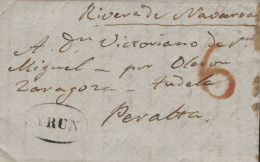 Rivera de Navarra
A Dn Victoriano de Sn
Miguel - por Oleron
Zaragoza - Tudela
Peralta.
6
YRUN